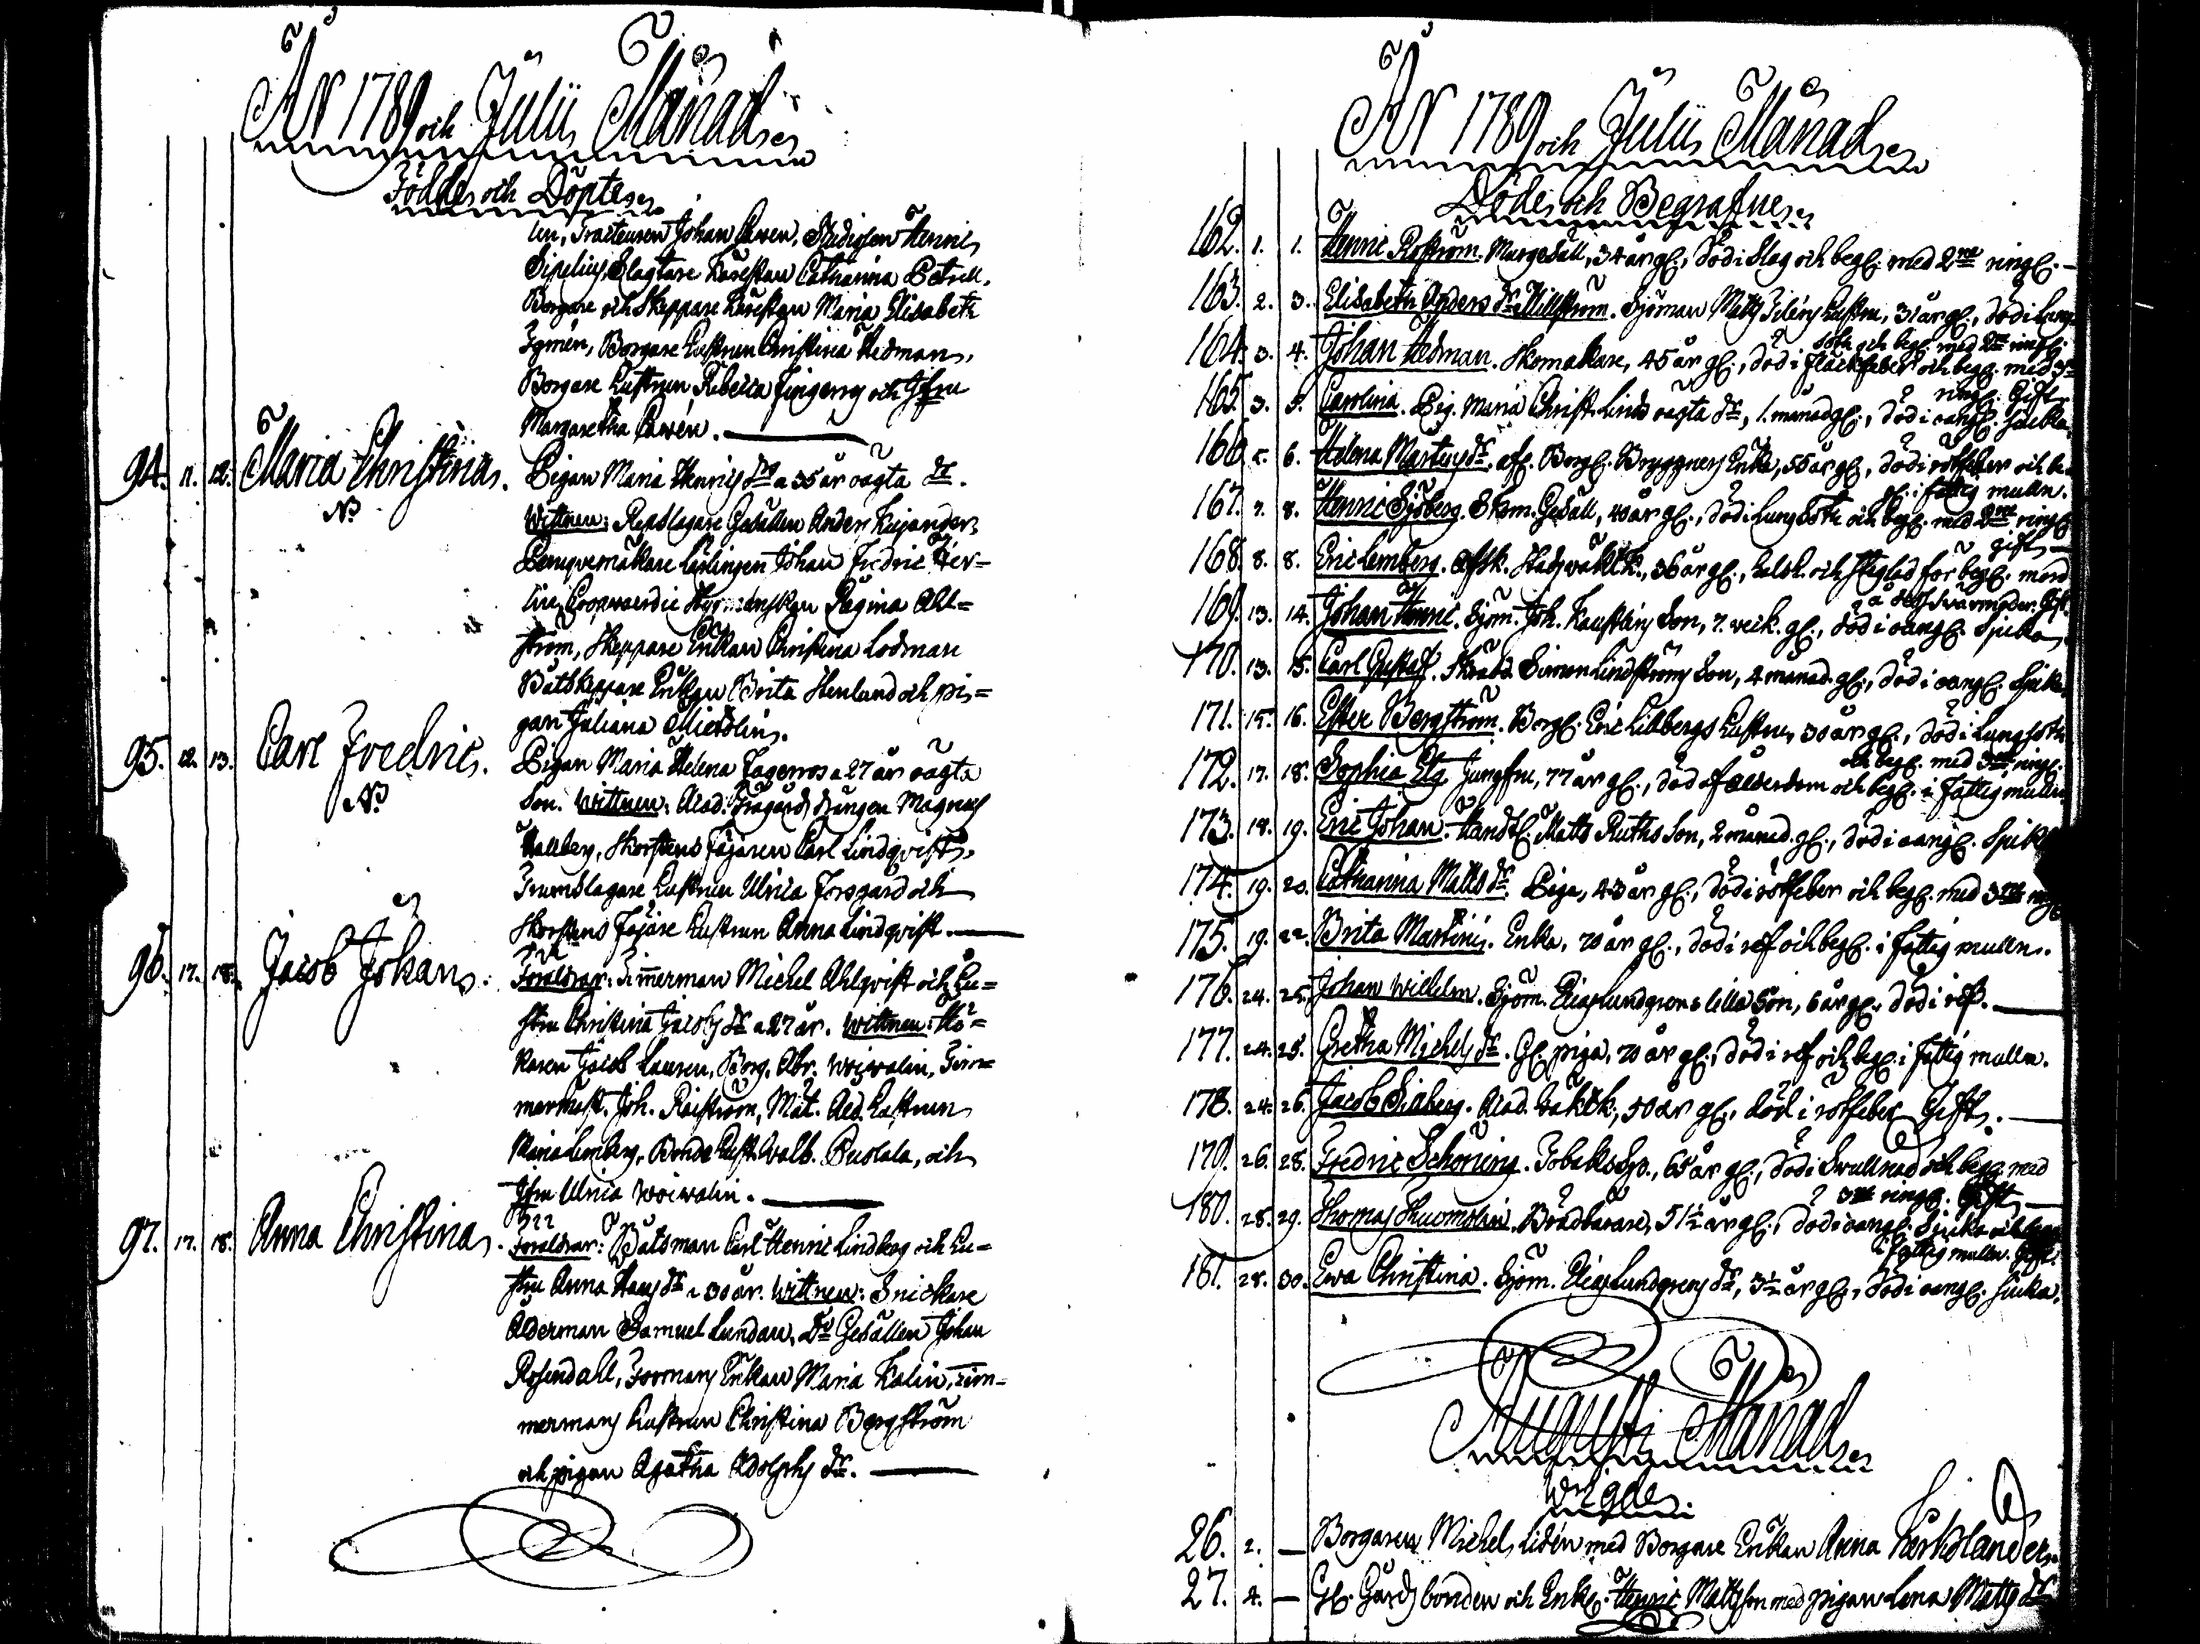 År 1789 och Julii Månad
Födde och Döpte
len, Tracteuren Johan Cawen, Studiosen Henric
Sipelius, Slagtare hustrun Catharina Petrell,
Borgare och Skeppare hustrun Maria Elisabeth
Borgare hustrun Christina Hedman,
Borgare hustrun Rebecca Fingerroos och Jgfru
Margaretha Cawén.
94. 11. 12. Maria Christina. Pigan Maria Henrics dr a 35 år oägta dr.
Wittnen: Repslagare Gesällen Anders
Johan Fredric
Regina Ahl=
ström, Skeppare Enkan Christina Lodman
Båtskeppare Enkan Brita Henlund och pi=
gan Juliana
95. 12. 13. Carl Fredric. Pigan Maria Helena Fagerroos a 27 år oägta
Son. Wittnen: Acad. Trägårds drängen Magnus
Hallberg, Skorstens fejaren Carl Lindqvist,
Trumslagare hustrun Ulrica Forsgård och
Skorstens fejare hustrun Anna Lindqvist.
96. 17. 18. Jacob Johan. Föräldrar: Timmerman Michel Ahlqvist och hu=
stru Christina Jacobs dr a 27 år. Wittnen:
Jacob Borg. Abr. Woiwalin, Tim=
Joh. Hustrun
Maria Limberg, Bonde hust. Walb. och
Jgfru Ulrica Woiwalin.
97. 17. 18. Anna Christina. Föräldrar: Båtsman Carl Henric Lindberg och hu=
stru Anna Hans dr a 30 år. Wittnen: Snickare
Ålderman Samuel Lundan, Do Gesällen Johan
Rosendahl, Formans Enkan Maria Kalin, Tim=
mermans hustrun Christina Bergström
och pigan Agatha Adolphs dr.
År 1789 och Julii Månad
Döde och Begrafne
162. 1. 1. Henric Roström. Gesäll, 34 år gl., död i Slag och begr. med 2ne ringr.
163. 2. 3. Elisabeth Anders dr Millström. Sjöman Matts hustru, 31 år gl., död i Lung
sot och begr. med 2ne ringr.
164. 3. 4. Johan Hedman. Skomakare, 45 år gl., död i fläckfeber och begr. med 3e
ringr. Gift.
165. 3. 5. Carolina. Pig. Maria Christ. Linds oägta dr, 1. månad gl., död i oangl. Sjukdom
166. 5. 6. Helena Mårtens dr, afl. Borg. Bryggners Enka, 55 år gl., död i rötfeber och be=
gr. i fattig mullen.
167. 7. 8. Henric Sjöberg. Skom. Gesäll, 40 år gl., död i Lungsot och begr. med 2ne ringr.
gift
168. 8. 8. Eric Lemberg. Afsk. Stadsvaktk., 36 år gl., halsh. och steglad för begl. mord
å des Svärmoder. Gift.
169. 13. 14. Johan Henric. Sjöm. Joh. Son, 7. veck. gl., död i oangl. Sjuka
170. 13. 15. Carl Gustaf. Simon Lindströms Son, 4 månad. gl., död i oangl. Sjuka,
171. 15. 16. Ester Bergström. Borg. Eric Lillbergs hustru, 30 år gl., död i Lungsot
och begr. med 3ne ringr.
172. 17. 18. Sophia Elg Jungfru, 77 år gl., död af ålderdom och begr. i fattig mullen
173. 18. 19. Eric Johan. Handtl. Matts Ruths Son, 2 månad. gl., död i oangl. Sjuk
174. 19. 20. Catharina Matts dr. Piga, 43 år gl., död i rötfeber och begr. med 3ne ringr.
175. 19. 22. Brita Martini. Enka, 70 år gl., död i ref och begr. i fattig mullen.
176. 24. 25. Johan Wilhelm. Sjöm. Elias Lundgrens lilla Son, 6 år gl., död i ref.
177. 24. 25. Gretha Michels dr. Gl. piga, 70 år gl., död i ref och begr. i fattig mullen.
178. 24. 26. Jacob Acad. Vaktk., 50 år gl., död i rötfeber Gift.
179. 26. 28. Fredric Schöning. Tobaks Sp., 65 år gl., död i Swullnad och begr. med
3ne ringr. Gift
180. 28. 29. Thomas 51½ år gl., död i oangl. Sjuka och begr.
i fattig mullen. Gift.
181. 28. 30. Ewa Christina. Sjöm. Elias Lundgrens dr, 3½ år gl., död i oangl. Sjuka.
Augusti Månad
Wigde.
26. 2. — Borgaren Michel Lidén med Borgare Enkan Anna
27. 4. — Gårds bonden och Enkl. Henric Mattsson med pigan Lena Matts dr